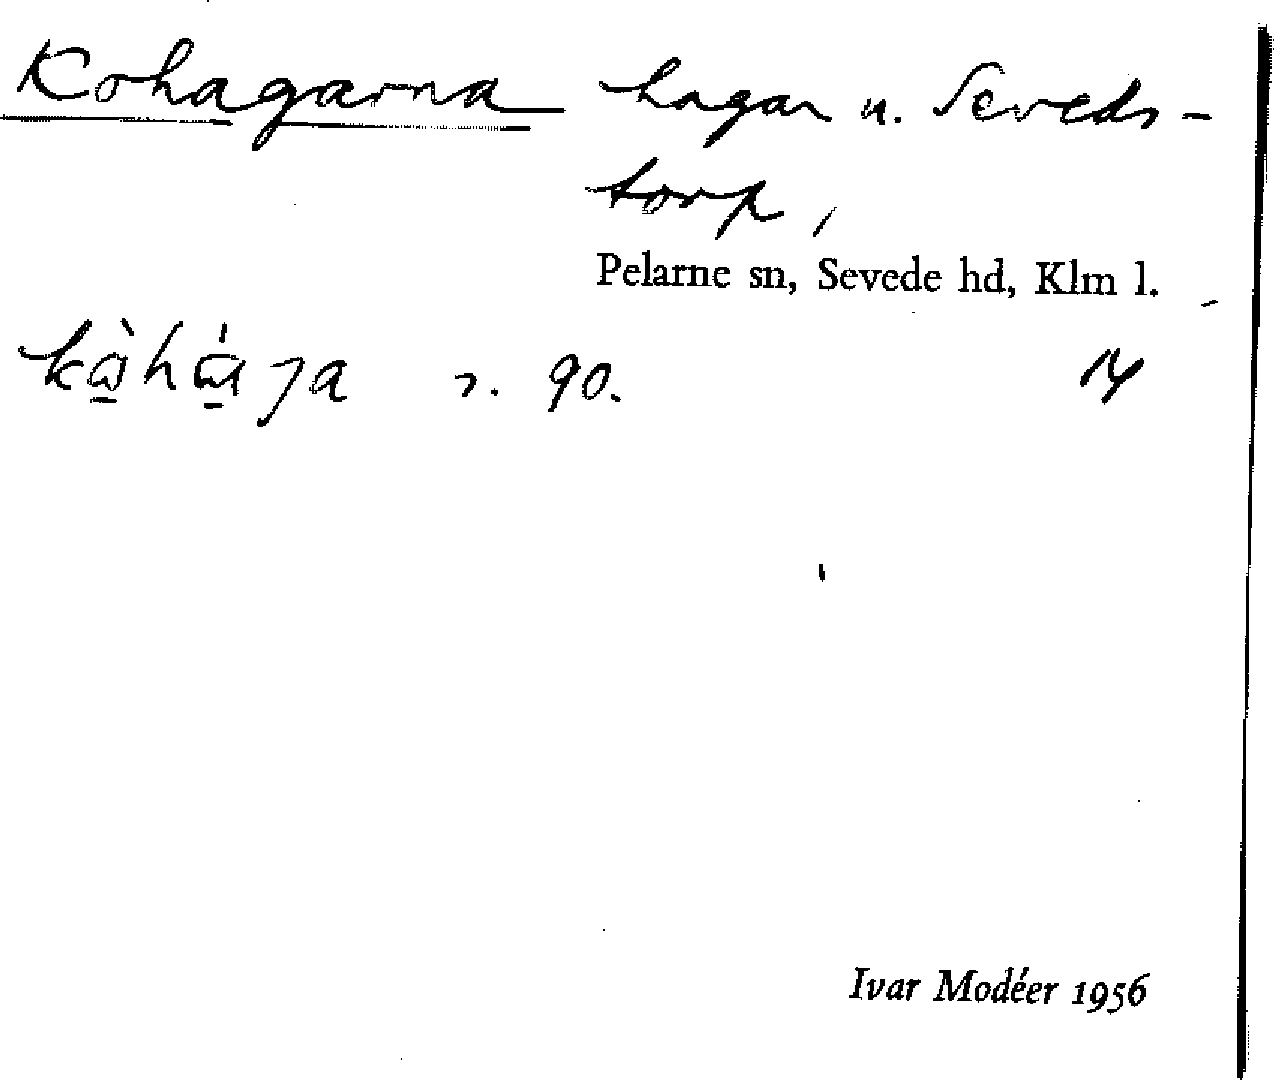 Kohagarna hagar u. Seveds-
torp,
Pelarne sn, Sevede hd, Klm l.
90.
Ivar Modéer 1956